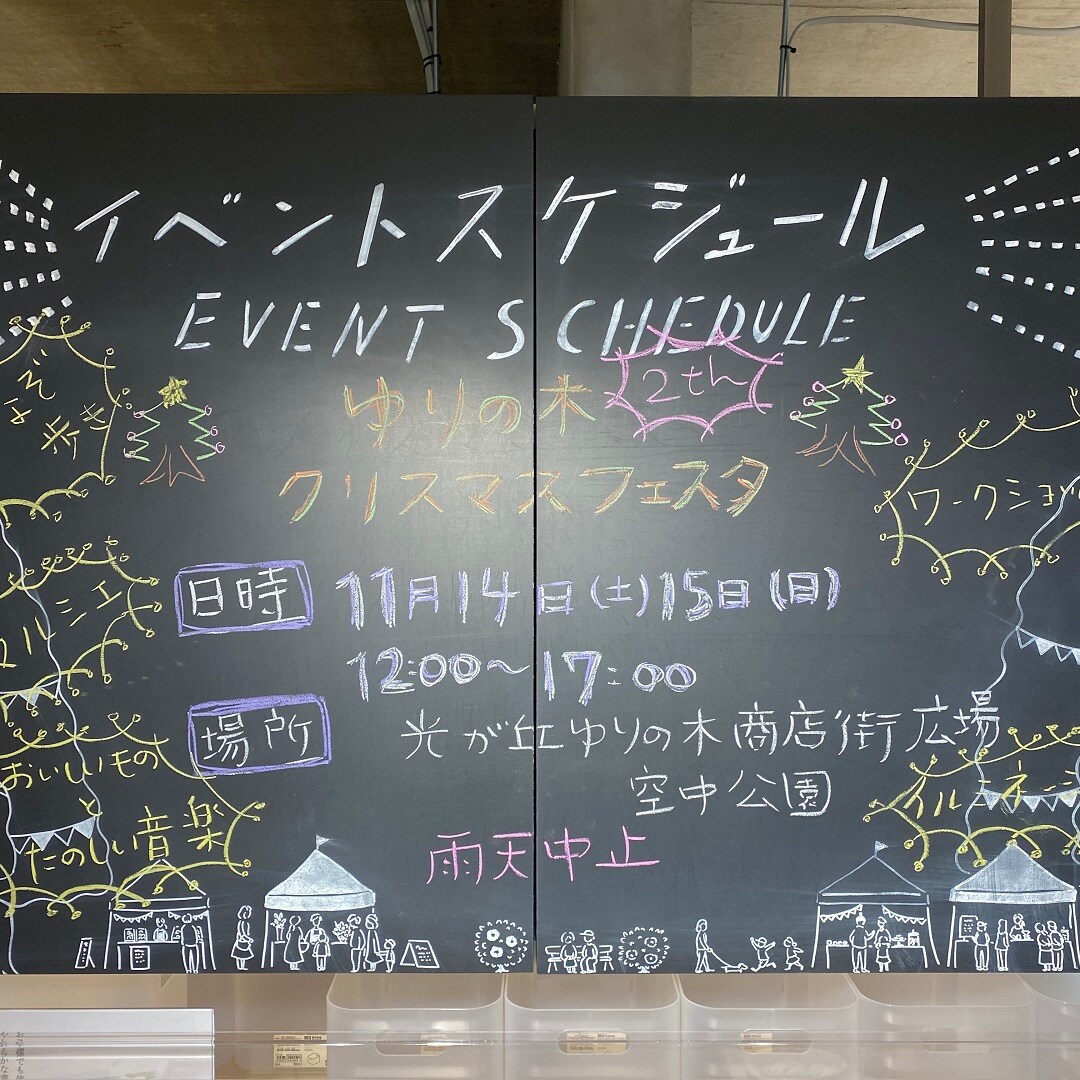 イベントスケジュール
EVENT SCHEDULE
ゆりの木 2th
クリスマスフェスタ
日時 11月14日(土)15日(日)
12:00〜17:00
場所 光が丘ゆりの木商店街広場
空中公園
雨天中止
歩き
ルシェ
おいしいもの
と
たのしい音楽
ワークショ
イルミネーシ